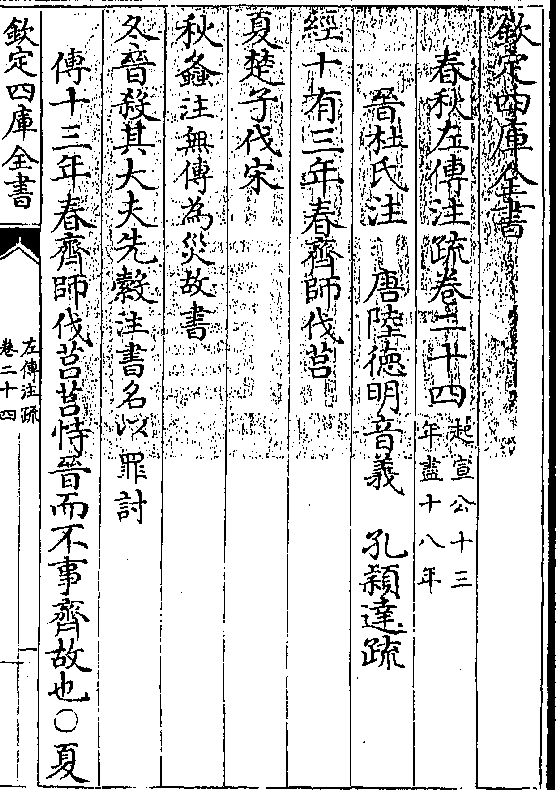 欽定四庫全書
春秋左傳注疏卷二十四 起宣公十三
年盡十八年
晉杜氏注 唐陸德明音義 孔穎達疏
經十有三年春齊師伐莒
夏楚子伐宋
秋螽注無傳為災故書
冬晉殺其大夫先縠注書名以罪討
傳十三年春齊師伐莒莒恃晉而不事齊故也○夏
欽定四庫全書
左傳注疏
卷二十四